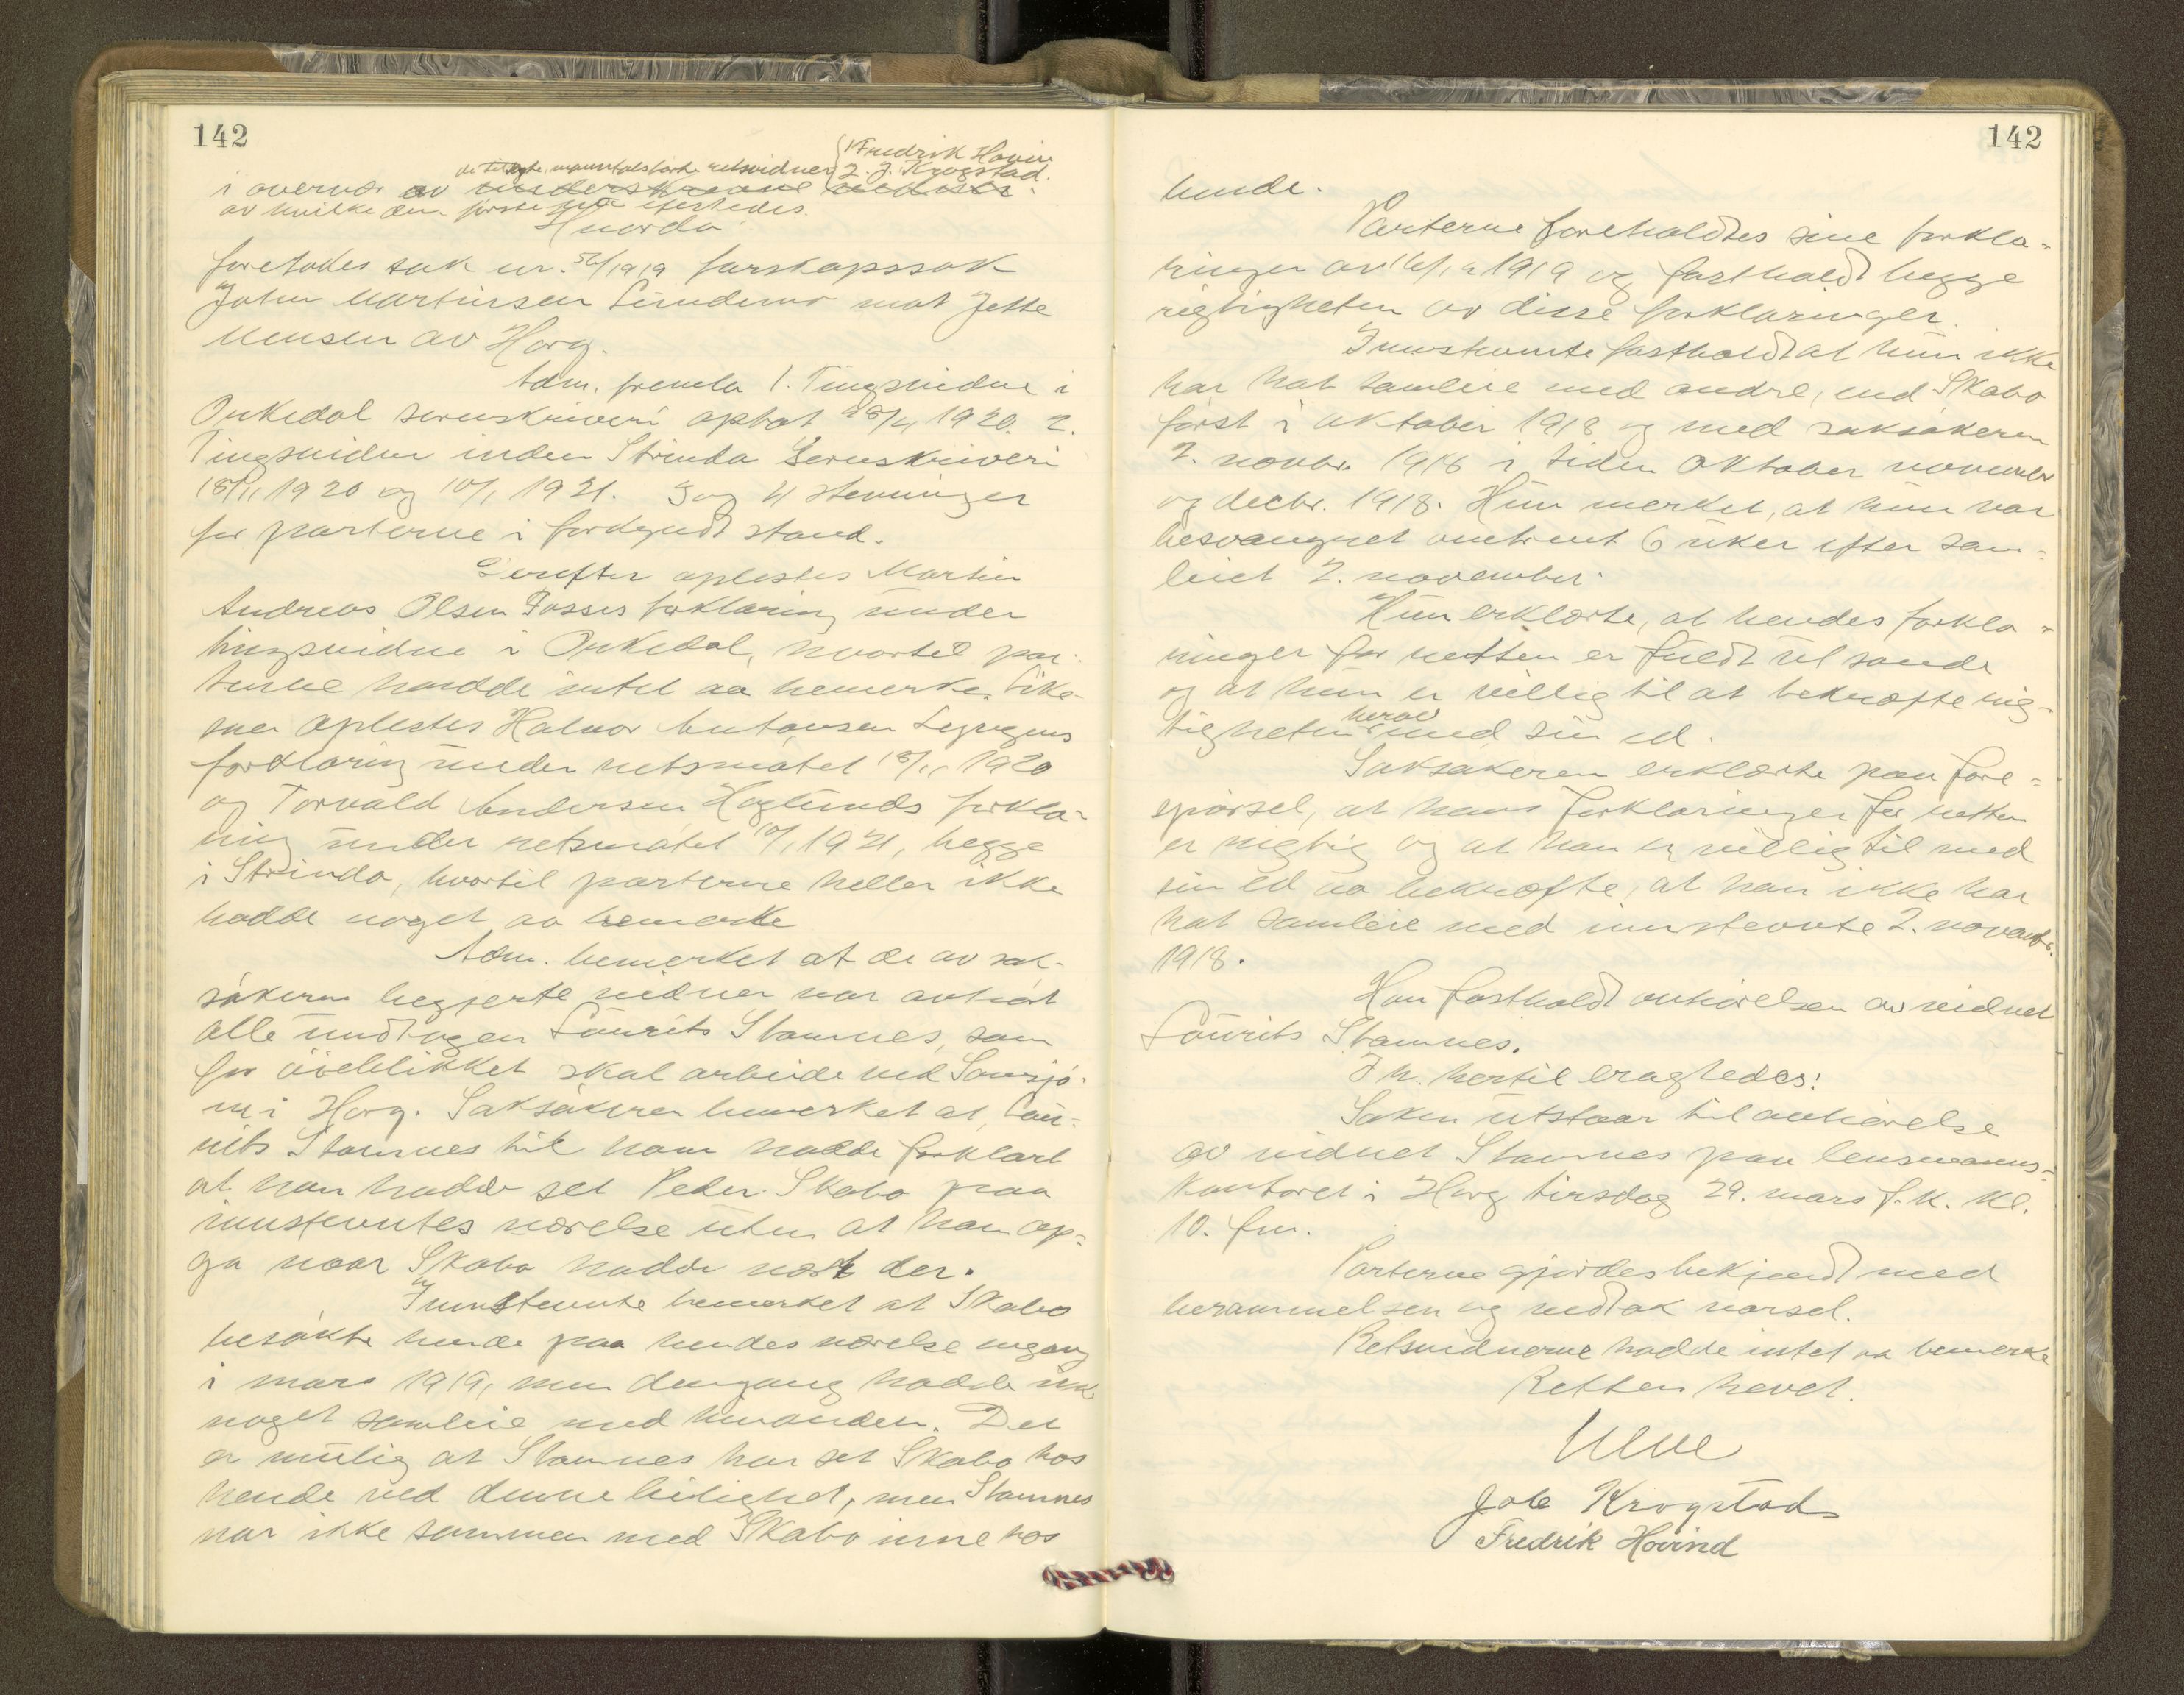 142
1 Fredrik Hovin
de tilsagte, manntalsførte retsvidner 2. J. Krogstad.
i overvær av underskrevne vidner.
av hvilke den første efterhedes.
Hvorda
foretodes sak nr. 56/1919 farskapssak
John Martinsen Sundemo mot Jette
Monsen av Horg.
Adm. fremla 1. Tingsvidne i
Orkedal sorenskriveri optat 28/4 1920. 2.
Tingsvidne inden Strinda Sorenskriveri
18/11 1920 og 10/1 1921. 3 og 4 stevninger
for parterne i forkyndt stand.
Derefter oplestes Martin
Andreas Olsen Fosses forklaring under
tingsvidne i Orkedal, hvortil par-
terne hadde intet aa bemerke. Like-
saa oplestes Halvor Antonsen
forklaring under retsmøtet 18/11 1920
og Torvald Andersen Hoglunds forkla-
ring under retsmøtet 10/1 1921, begge
i Strinda, hvortil parterne heller ikke
hadde noget aa bemerke
Adm. bemerket at de av sak-
søkeren begjerte vidner var avhørt
alle undtagen Laurits Stamnes, som
for øieblikket skal arbeide ved Samsjø-
en i Horg. Saksøkeren bemerket at Lau-
rits Stamnes til ham hadde forklart
at han hadde set Peder Skabo paa
innstevntes værelse uten at han op-
ga naar Skabo hadde vært der.
Innstevnte bemerket at Skabo
besøkte hende paa hendes værelse engang
i mars 1919, men dengang hadde ikke
noget samleie med hinanden. Det
er mulig at Stamnes har set Skabo hos
hende ved denne leilighet, men Stamnes
var ikke sammen med Skabo inne hos
142
hende.
Parterne foreholdtes sine forkla-
ringer av 16/12 1919 og fastholdt begge
rigtigheten av disse forklaringer.
Innstevnte fastholdt at hun ikke
har hat samleie med andre, end Skabo
først i oktober 1918 og med saksøkeren
2. novbr. 1918 i tiden oktober november
og decbr. 1918. Hun merket, at hun var
besvangret omtrent 6 uker efter sam-
leiet 2. november.
Hun erklærte, at hendes forkla-
ringer for retten er fuldt ut sande
og at hun er villig til at bekræfte rig-
tigheten herav med sin ed.
Saksøkeren erklærte paa fore-
spørsel, at hans forklaringer for retten
er rigtig og at han er villig til med
sin ed aa bekræfte, at han ikke har
hat samleie med innstevnte 2. novembr.
1918.
Han fastholdt avhørelsen av vidnet
Laurits Stamnes.
I h. hertil eragtedes:
Saken utstaar til avhørelse
av vidnet Stamnes paa lensmanns-
kontoret i Horg tirsdag 29. mars f. k. kl.
10. fm.
Parterne gjordes bekjendt med
berammelsen og vedtok varsel.
Retsvidnerne hadde intet aa bemerke
Retten hevet.
Ulve
Jole Krogstad
Fredrik Hovind